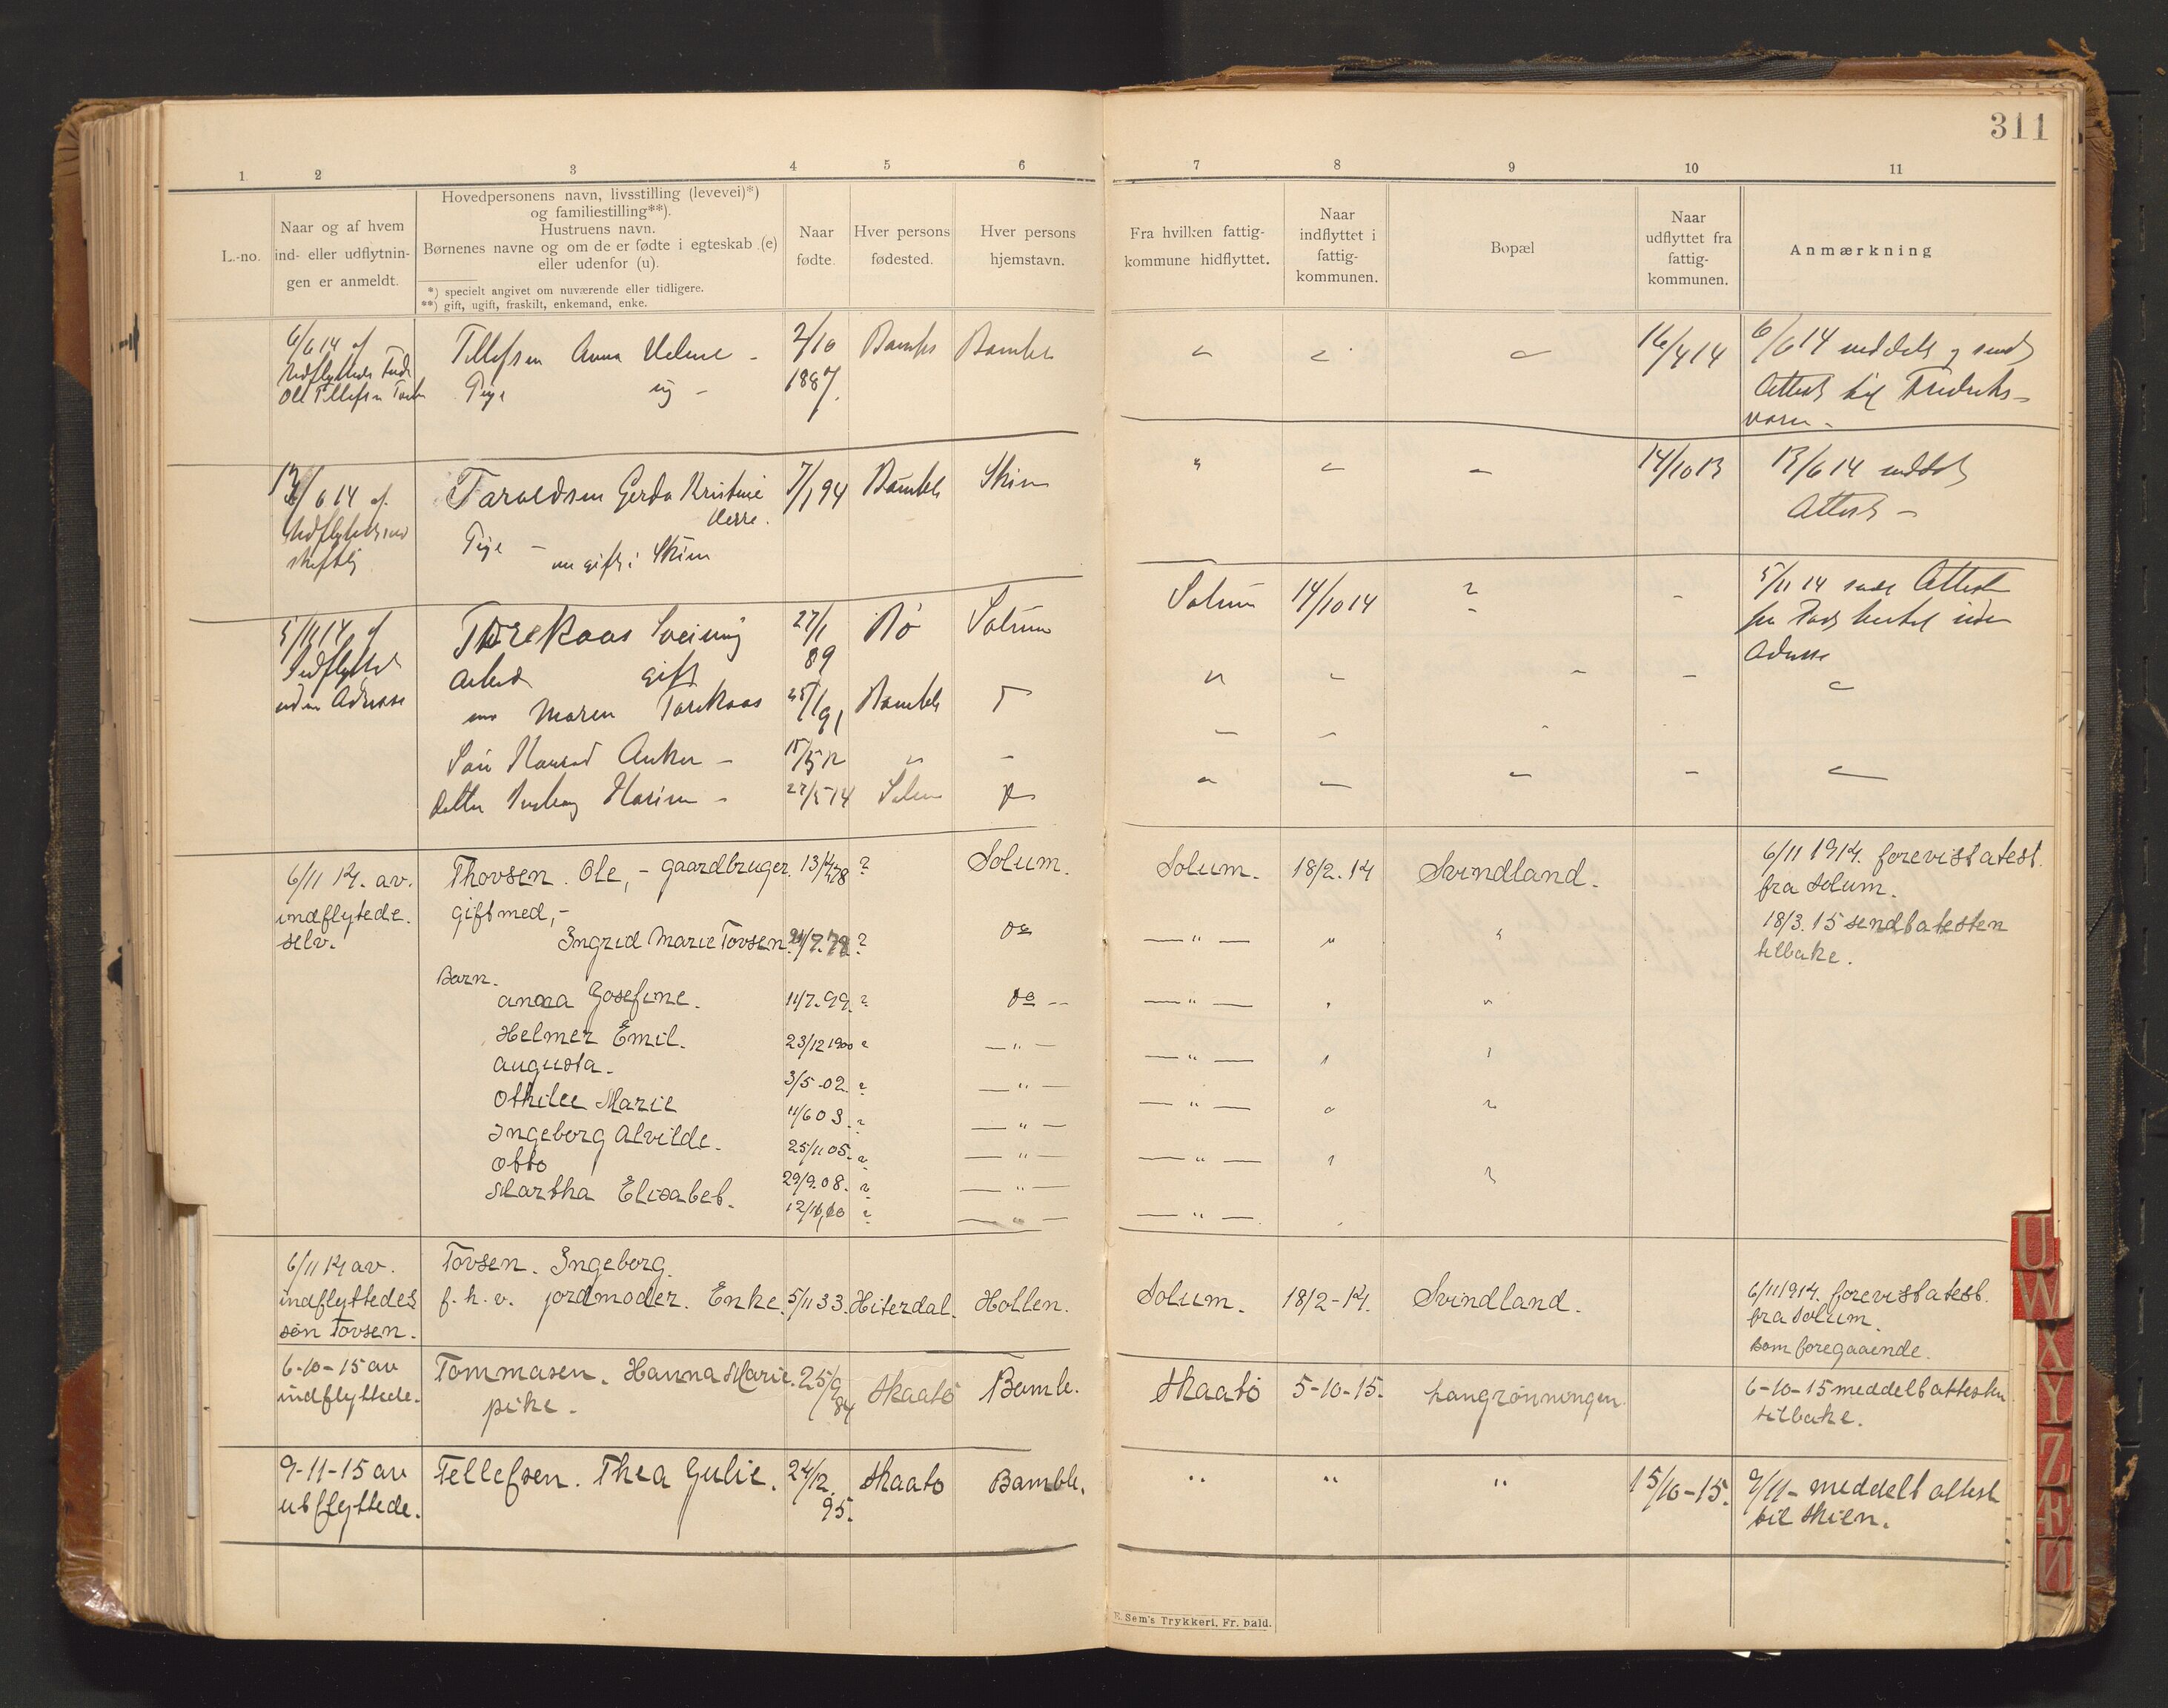 311
1 2 3 4 5 6 7 8 9 10 11
L.-no.
Naar og af hvem
ind- eller udflytnin-
gen er anmeldt.
Hovedpersonens navn, livsstilling (levevei)*)
og familiestilling**).
Hustruens navn.
Børnenes navne og om de er fødte i egteskab (e)
eller udenfor (u).
*) specielt angivet om nuværende eller tidligere.
**) gift, ugift, fraskilt, enkemand, enke.
Naar
fødte.
Hver persons
fødested.
Hver persons
hjemstavn.
Fra hvilken fattig-
kommune hidflyttet.
Naar
indflyttet i
fattig-
kommunen.
Bopæl
Naar
udflyttet fra
fattig-
kommunen.
Anmærkning
6/6 14 af
Ole Tellefsen
Tellefsen Anna
Pige ug -
2/10
1887.
Bamble
Bamble
16/4 14
6/6 14 meddelt og sendt
Attest til Fredriks-
værn -
6 14 af
Udflyttede
Taraldsen Gerda Kristine
Herre.
Pige -
nu gift i Skien
7/1 94
Bamble
Skien
14/10 13
13/6 14 meddelt
Attest -
5/11 14 af
Indflyttede
uden Adresse
Torekaas Sveinung
Arbeid gift
Maren Torekaas
Søn Konrad Anker -
Datter
27/1
89
Bø
Solum
25/1 91
Bamble
15/5 12
27/5 14
Solum
Solum
14/10 14
?
5/11 14 Attest
uden
Adresse
6/11 14. av.
indflytede.
selv.
Thovsen. Ole, - gaardbruger.
gift med, -
Ingrid Marie Tovsen.
Barn.
Anna Gosefine.
Helmer Emil.
Augusta.
Othilie Marie
Ingeborg Alvilde.
Otto
Martha Elisabet.
?
Solum.
?
Do
11/7. 99. ?
Do --
23/12 1900 ?
— " —
3/5 - 02. ?
— " —
11/6 03. ?
— " —
25/11 05. ?
— " —
29/9. 08. ?
— " —
?
— " —
Solum.
18/2. 14
Svindland.
6/11 1914. forevist atest.
fra Solum.
18/3. 15 sendt atesten
tilbake.
6/11 14 av.
indflyttedes
søn Tovsen.
Tovsen. Ingeborg.
f. h. v. jordmoder. Enke.
5/11 33.
Hiterdal.
Hollen.
Solum.
18/2 - 14.
Svindland.
6/11 1914. forevist atest.
fra Solum.
som foregaaende.
6-10-15 av
indflyttede.
Tommasen. Hanna Marie.
pike.
25/9
84
Skaatö
Bamble.
Skaatö
5-10-15.
Langrönningen.
6-10-15 meddelt attesten
tilbake.
9-11-15 av
utflyttede.
Tellefsen. Thea Gulie.
24/12.
95.
Skaatö
Bamble.
"
"
"
15/10-15.
9/11 - meddelt attest
til Skien.
E. Sem's Trykkeri, Fr. hald.
U
W
X
Y
Z
Æ
Ø